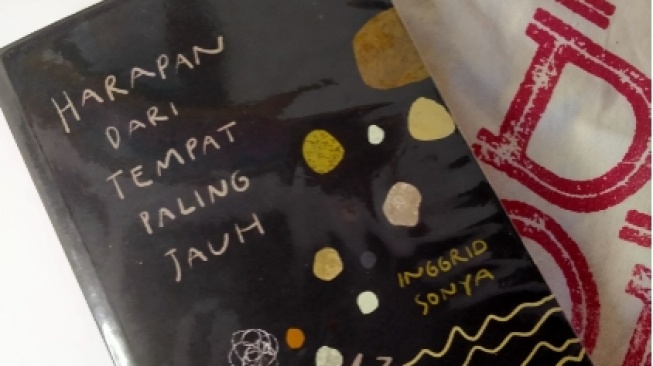 HARAPAN
DARI
TEMPAT
PALING
JAUH
INGGRID
SONYA